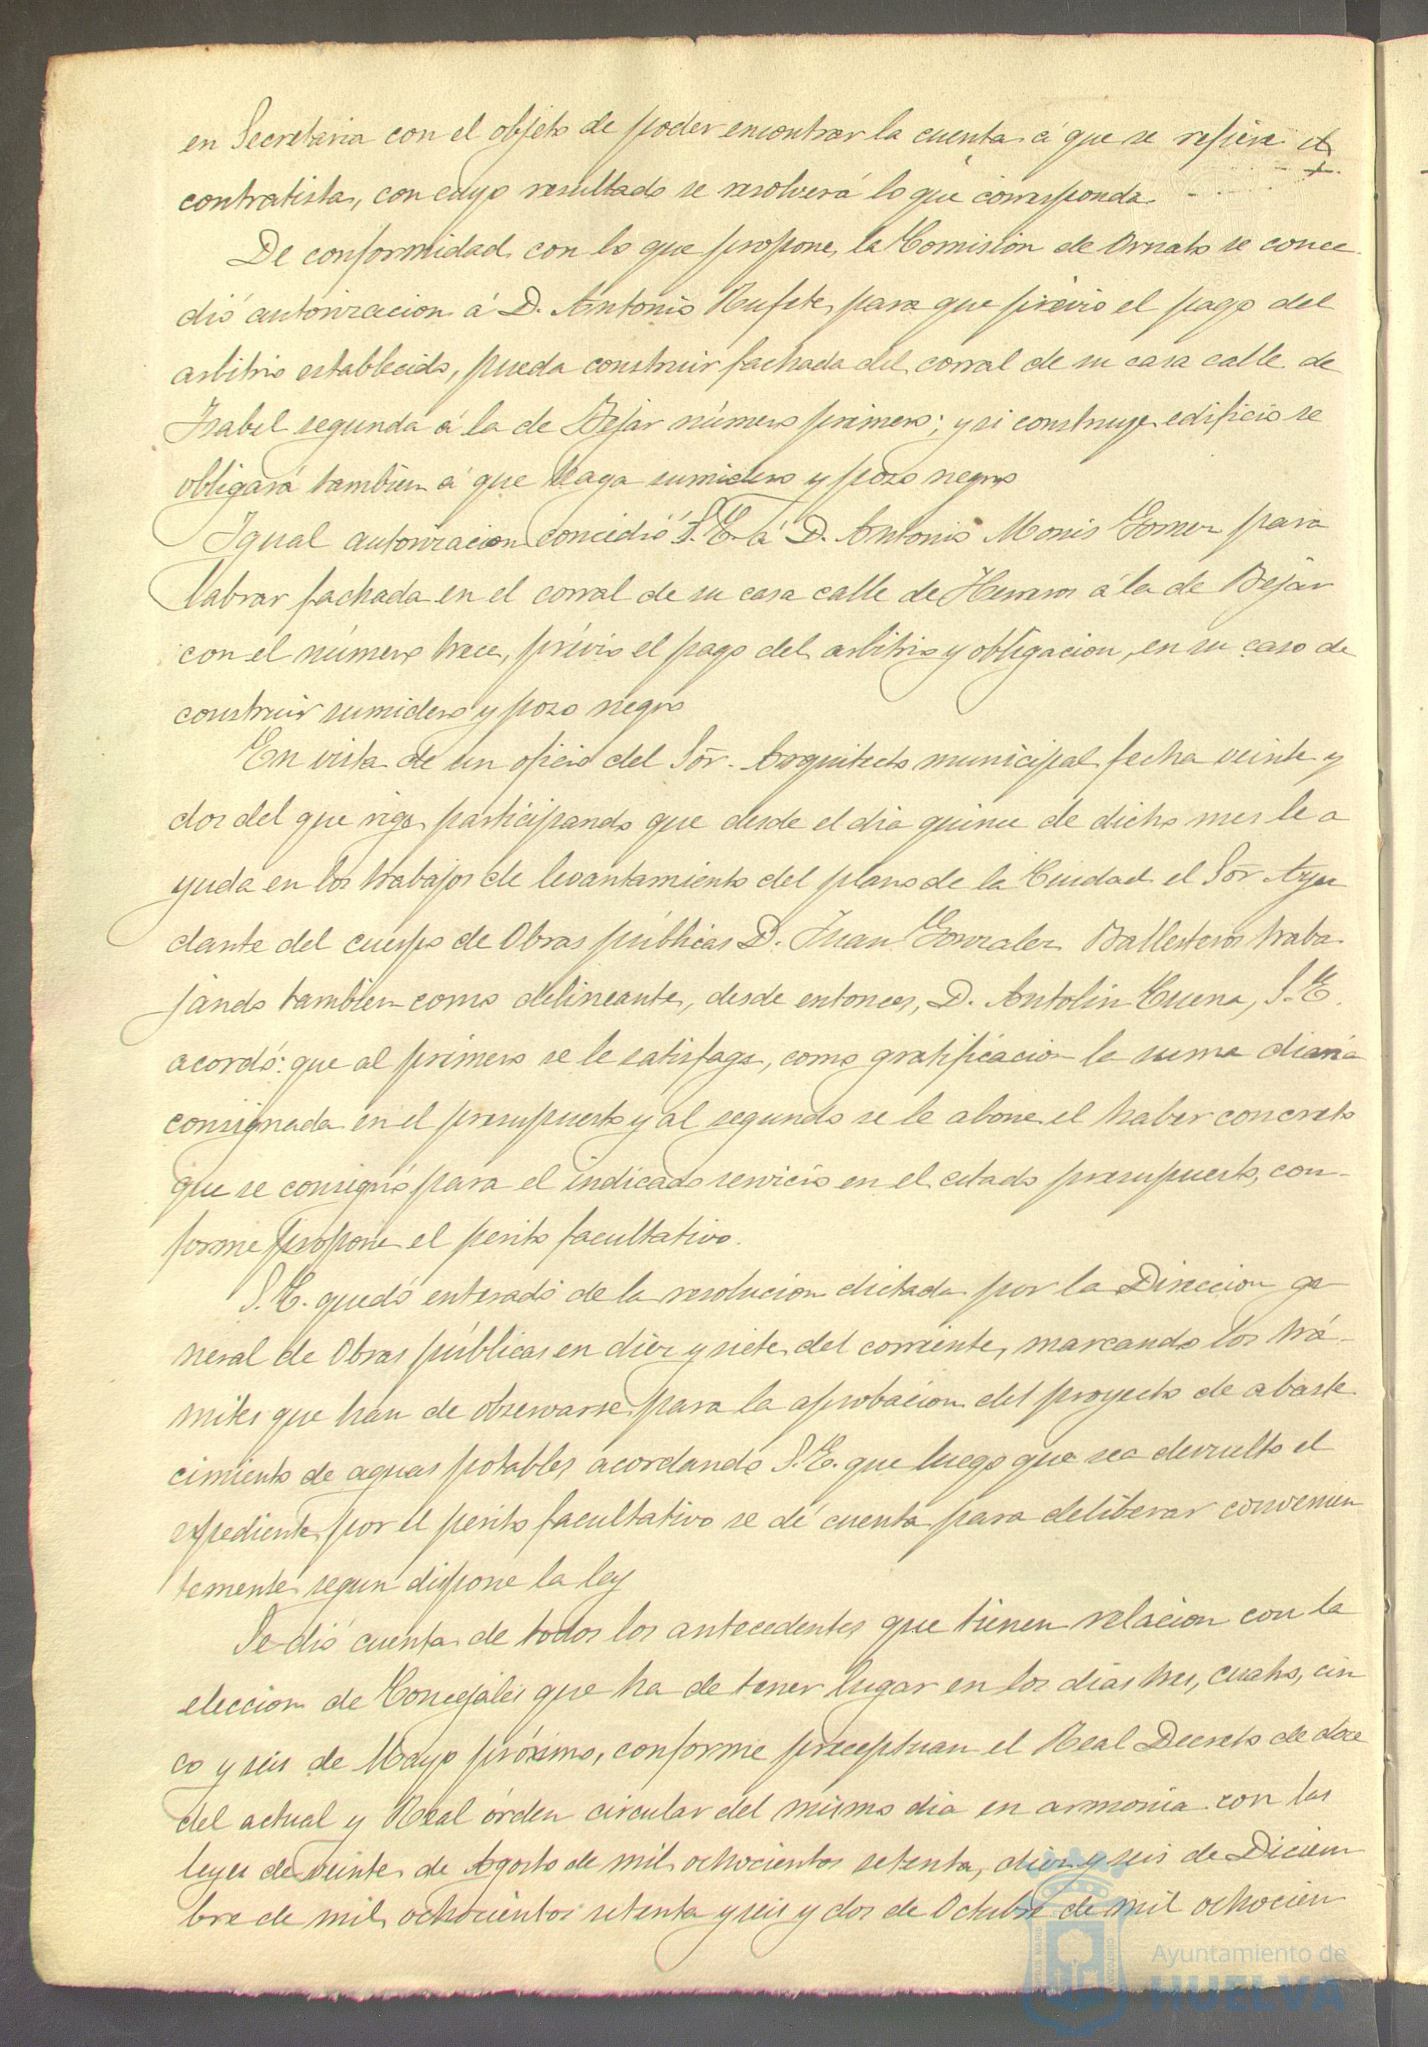 en Secretaria con el objeto de poder encontrar la cuenta á que se refiere el
contratista, con cuyo resultado se resolverá lo que corresponda.
De conformidad con lo que propone la Comisión de Ornato se conce
dió autorizacion á D. Antonio Rufete para que prévio el pago del
arbitrio establecido, pueda construir fachada del corral de su casa calle de
Isabel segunda á la de Bejar número primero; y si construye edificio se
obligará tambien á que haga sumidero y pozo negro
Igual autorizacion concedió S.E. á D. Antonio Monis Gomez para
labrar fachada en el corral de su casa calle de Herreros á la de Bejar
con el número trece, prévio el pago del arbitrio y obligacion, en su caso de
construir sumidero y pozo negro
En vista de un oficio del Sor. Arquitecto municipal fecha veinte y
dos del que rige, participando que desde el dia quince de dicho mes le a
yuda en los trabajos de levantamiento del plano de la Ciudad el Sor Ayu
dante del cuerpo de Obras públicas D. Juan Gonzalez Ballesteros traba
jando tambien como delineante, desde entonces, D. Antolin Cuena, S.E.
acordó: que al primero se le satisfaga, como gratificacion la suma diaria
consignada en el presupuesto y al segundo se le abone el haber concreto
que se consignó para el indicado servicio en el citado presupuesto, con-
forme propone el perito facultativo.
S.E. quedó enterado de la resolucion dictada por la Direccion ge
neral de Obras públicas en diez y siete del corriente, marcando los trá-
mites que han de observarse para la aprobacion del proyecto de abaste
cimiento de aguas potables acordando S.E. que luego que sea devuelto el
expediente por el perito facultativo se dé cuenta para deliberar convenien
temente segun dispone la ley
Se dió cuenta de todos los antecedentes que tienen relacion con la
eleccion de Concejales que ha de tener lugar en los dias tres, cuatro, cin
co y seis de Mayo próximo, conforme preceptuan el Real Decreto de doce
del actual y Real órden circular del mismo dia en armonia con las
leyes de veinte de Agosto de mil ochocientos setenta, diez y seis de Diciem
bre de mil ochocientos setenta y seis y dos de Octubre de mil ochocien
Ayuntamiento de
HUELVA